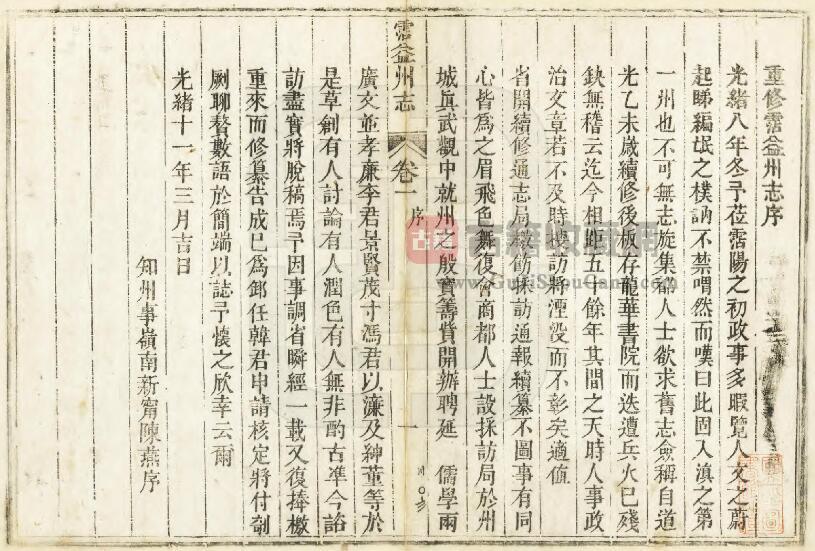 重修霑益州志序
光緒八年冬予莅霑陽之初政事多暇覽人文之蔚
起睇編氓之樸訥不禁喟然而嘆曰此固入滇之第
一州也不可無志旋集都人士欲求舊志僉稱自道
光乙未歲續修後板存龍華書院而迭遭兵火已殘
缺無稽云迄今相距五十餘年其間之天時人事政
治文章若不及時搜訪將湮没而不彰矣適值
省開續修通志局檄飭採訪通報續纂不圖事有同
心皆為之眉飛色舞復會商都人士設採訪局於州
城真武觀中就州之殷實籌貲開辦聘延 儒學兩
霑益州志 卷一 序 一
廣文並孝廉李君景賢茂才馮君以濂及紳董等於
是草創有人討論有人潤色有人無非酌古準今諮
訪盡實將脫稿焉予因事調省瞬經一載又復捧檄
重來而修纂告成已為卸任韓君申請核定將付剞
劂聊贅數語於簡端以誌予懷之欣幸云爾
光緒十一年三月吉日
知州事嶺南新甯陳燕序
古籍收藏網
www.GujiShouCang.com